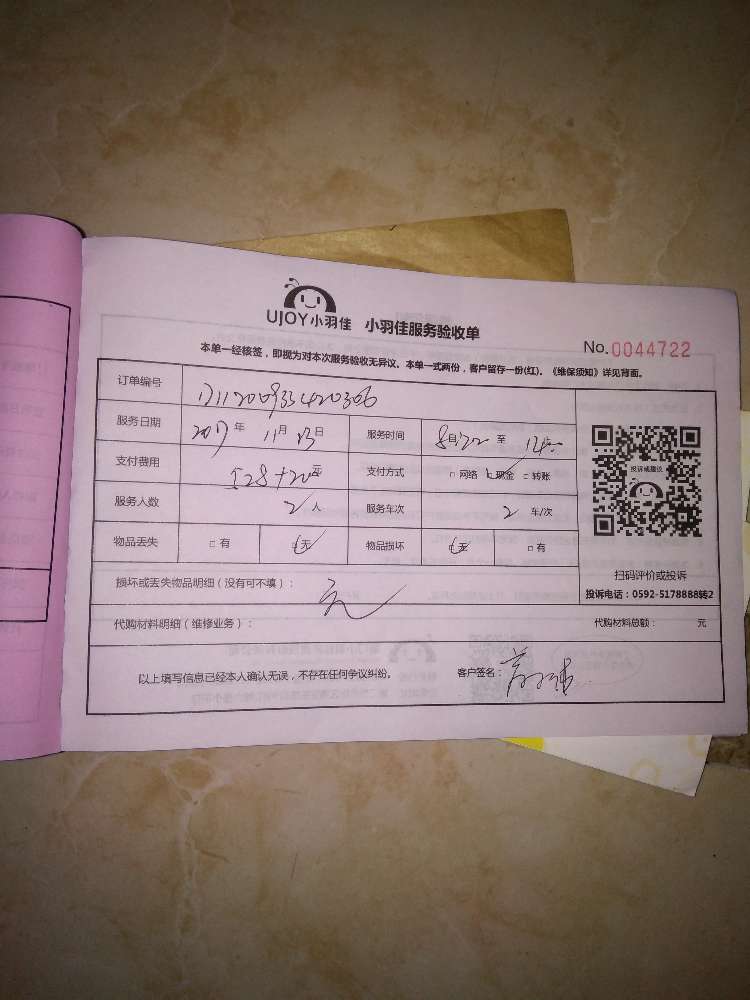 UJOY小羽佳 小羽佳服务验收单
No.0044722
本单一经核签，即视为对本次服务验收无异议。本单一式两份，客户留存一份(红)。《维保须知》详见背面。
订单编号
服务日期 2017年 11月 13日 服务时间 至
支付费用 528+20元 支付方式 □网络 □现金 □转账
服务人数 2人 服务车次 2 车/次
物品丢失 □有 □无 物品损坏 □无 □有
损坏或丢失物品明细（没有可不填）： 无
代购材料明细（维修业务）： 代购材料总额： 元
以上填写信息已经本人确认无误，不存在任何争议纠纷。 客户签名：
投诉或建议
扫码评价或投诉
投诉电话：0592-5178888转2